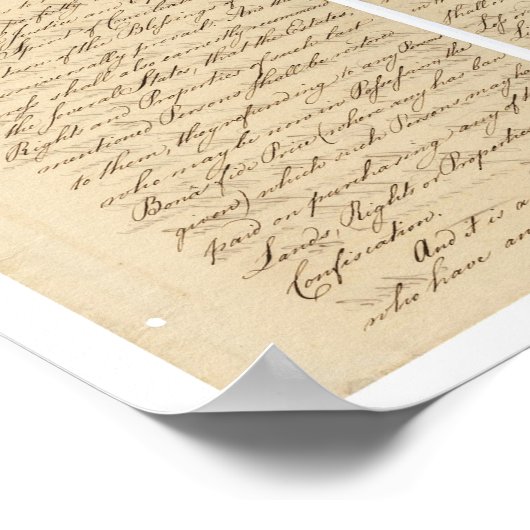 Spirit of Conciliation
of the Blessings of
prevail. And
shall also earnestly recommend
the Severale States, that the Estates.
Rights and Properties of such last
mentioned Persons shall be restored
to them, they refunding to any Persons
who may be now in Possession, the
Bonâ fide Price (where any has been
given) which such Persons may
paid on purchasing any of
Lands, Rights or Properties
Confiscation.
And it is a
who have